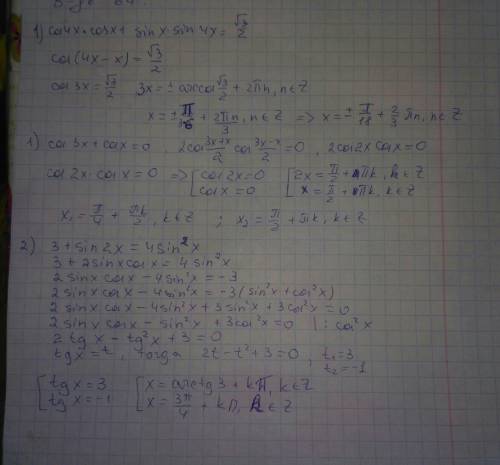 1) cos4x·cosx + sinx·sin4x = √3/2
cos(4x-x) = √3/2
cos3x = √3/2   3x = ± arccos √3/2 + 2πn, n∈Z
x = ± π/3·6 + 2πn/3, n∈Z ⇒ x = ± π/18 + 2/3 πn, n∈Z
1) cos3x + cosx = 0, 2cos (3x+x)/2 cos (3x-x)/2 = 0, 2cos2x cosx = 0
cos2x·cosx = 0 ⇒ [ cos2x = 0   [ 2x = π/2 + πk, k∈Z
cosx = 0   x = π/2 + πk, k∈Z
x₁ = π/4 + πk/2, k∈Z ; x₂ = π/2 + πk, k∈Z
2) 3 + sin2x = 4sin²x
3 + 2sinxcosx = 4sin²x
2sinxcosx - 4sin²x = -3
2sinxcosx - 4sin²x = -3(sin²x + cos²x)
2sinxcosx - 4sin²x + 3sin²x + 3cos²x = 0
2sinxcosx - sin²x + 3cos²x = 0 | : cos²x
2tgx - tg²x + 3 = 0
tgx = t, тогда 2t - t² + 3 = 0, t₁ = 3
t₂ = -1
[ tgx = 3   [ x = arctg3 + kπ, k∈Z
tgx = -1   x = 3π/4 + kπ, k∈Z